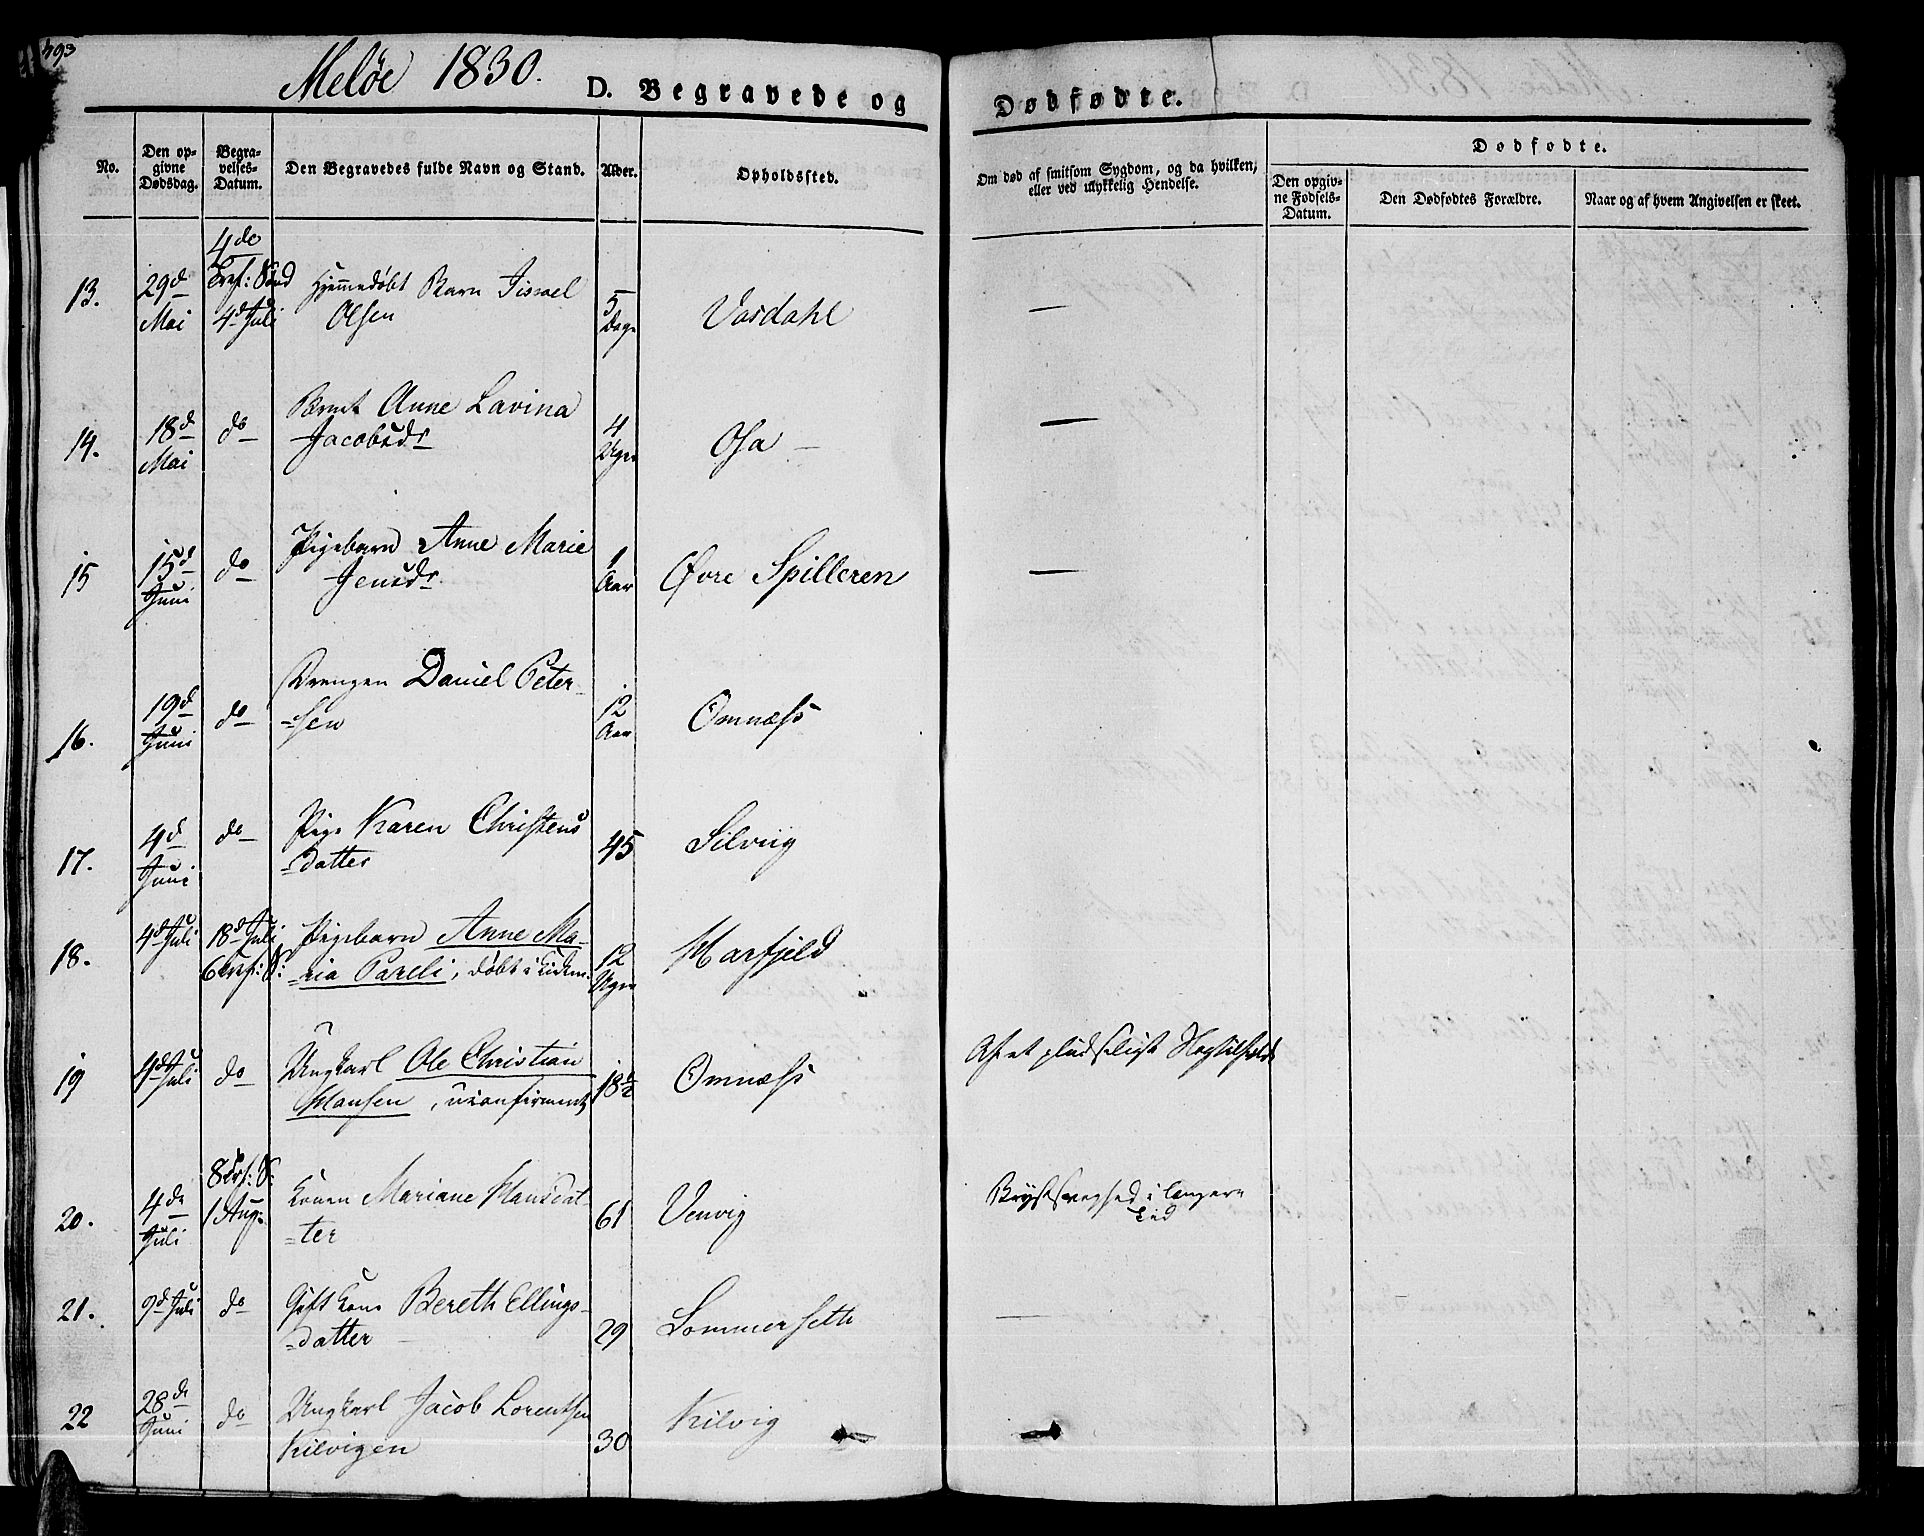 493
Meløe 1830.
D. Begravede og
Dødfødte.
No.
Den op-
givne
Dødsdag.
Begra-
velses-
Datum.
Den Begravedes fulde Navn og Stand.
Alder.
Opholdssted.
Om død af smitsom Sygdom, og da hvilken,
eller ved ulykkelig Hendelse.
Dødfødte.
Den opgiv-
ne Fødsels-
Datum.
Den Dødfødtes Forældre.
Naar og af hvem Angivelsen er skeet.
13.
29d
Mai
4de
Tref: Sønd
4d Juli
Hjemmedøbt Barn Jissael
Olsen
5
Dage
Vasdahl
—
14.
18d
Mai
do
Barnet Anne Lavina
Jacobsdr
4
Uger
Osa —
—
15
15d
Juni
do
Pigebarn Anne Marie
Jensdr
1
Aar
Øvre Spilleren
—
16.
19d
Juni
do
Drengen Daniel Peter-
-sen
12
Aar
Omnæss
17.
4d
Juni
do
Pige Karen Christens
-datter
45
Silvig
18.
4d Juli
18d Juli
6 Tref: S:
Pigebarn Anne Ma-
-ria Pareli, døbt i Kirken
12
Uger
Harfjeld
19
4d Juli
do
Ungkarl Ole Christian
Hansen, uconfirmert
18½
Omnæss
Af et pludseligt
20.
4de
Juli
8 Tref: S:
1 Aug:
Konen Mariane Hansdat-
-ter
61
Venvig
Brystsvaghed i længere
Tid
21.
9d Juli
do
Gift Kone Bereth Ellings-
-datter
29
Sommersette
—
22
28de
Juni
do
Ungkarl Jacob Lorentsen
Kilvigen
30
Kilvig